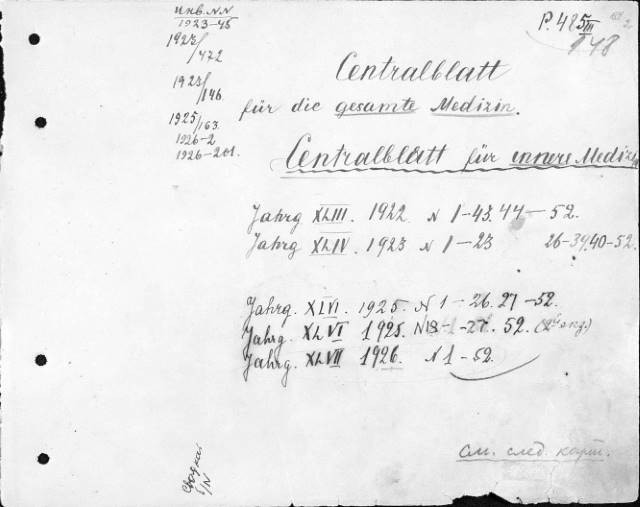 инв. NN
1923-45
1923/472
1923/146
1925/163
1926-2
1926-201.
P. 485 III
148
Centralblatt
für die gesamte Medizin.
Centralblatt für innere Medizin
Jahrg XLIII. 1922 N 1-43. 44-52.
Jahrg XLIV. 1923 N 1-23 26-39. 40-52.
Jahrg. XLVI. 1925. N 1-26. 27-52.
Jahrg. XLVI 1925. 52. (2й экз.)
Jahrg. XLVII 1926. N 1-52.
См. след. карт.